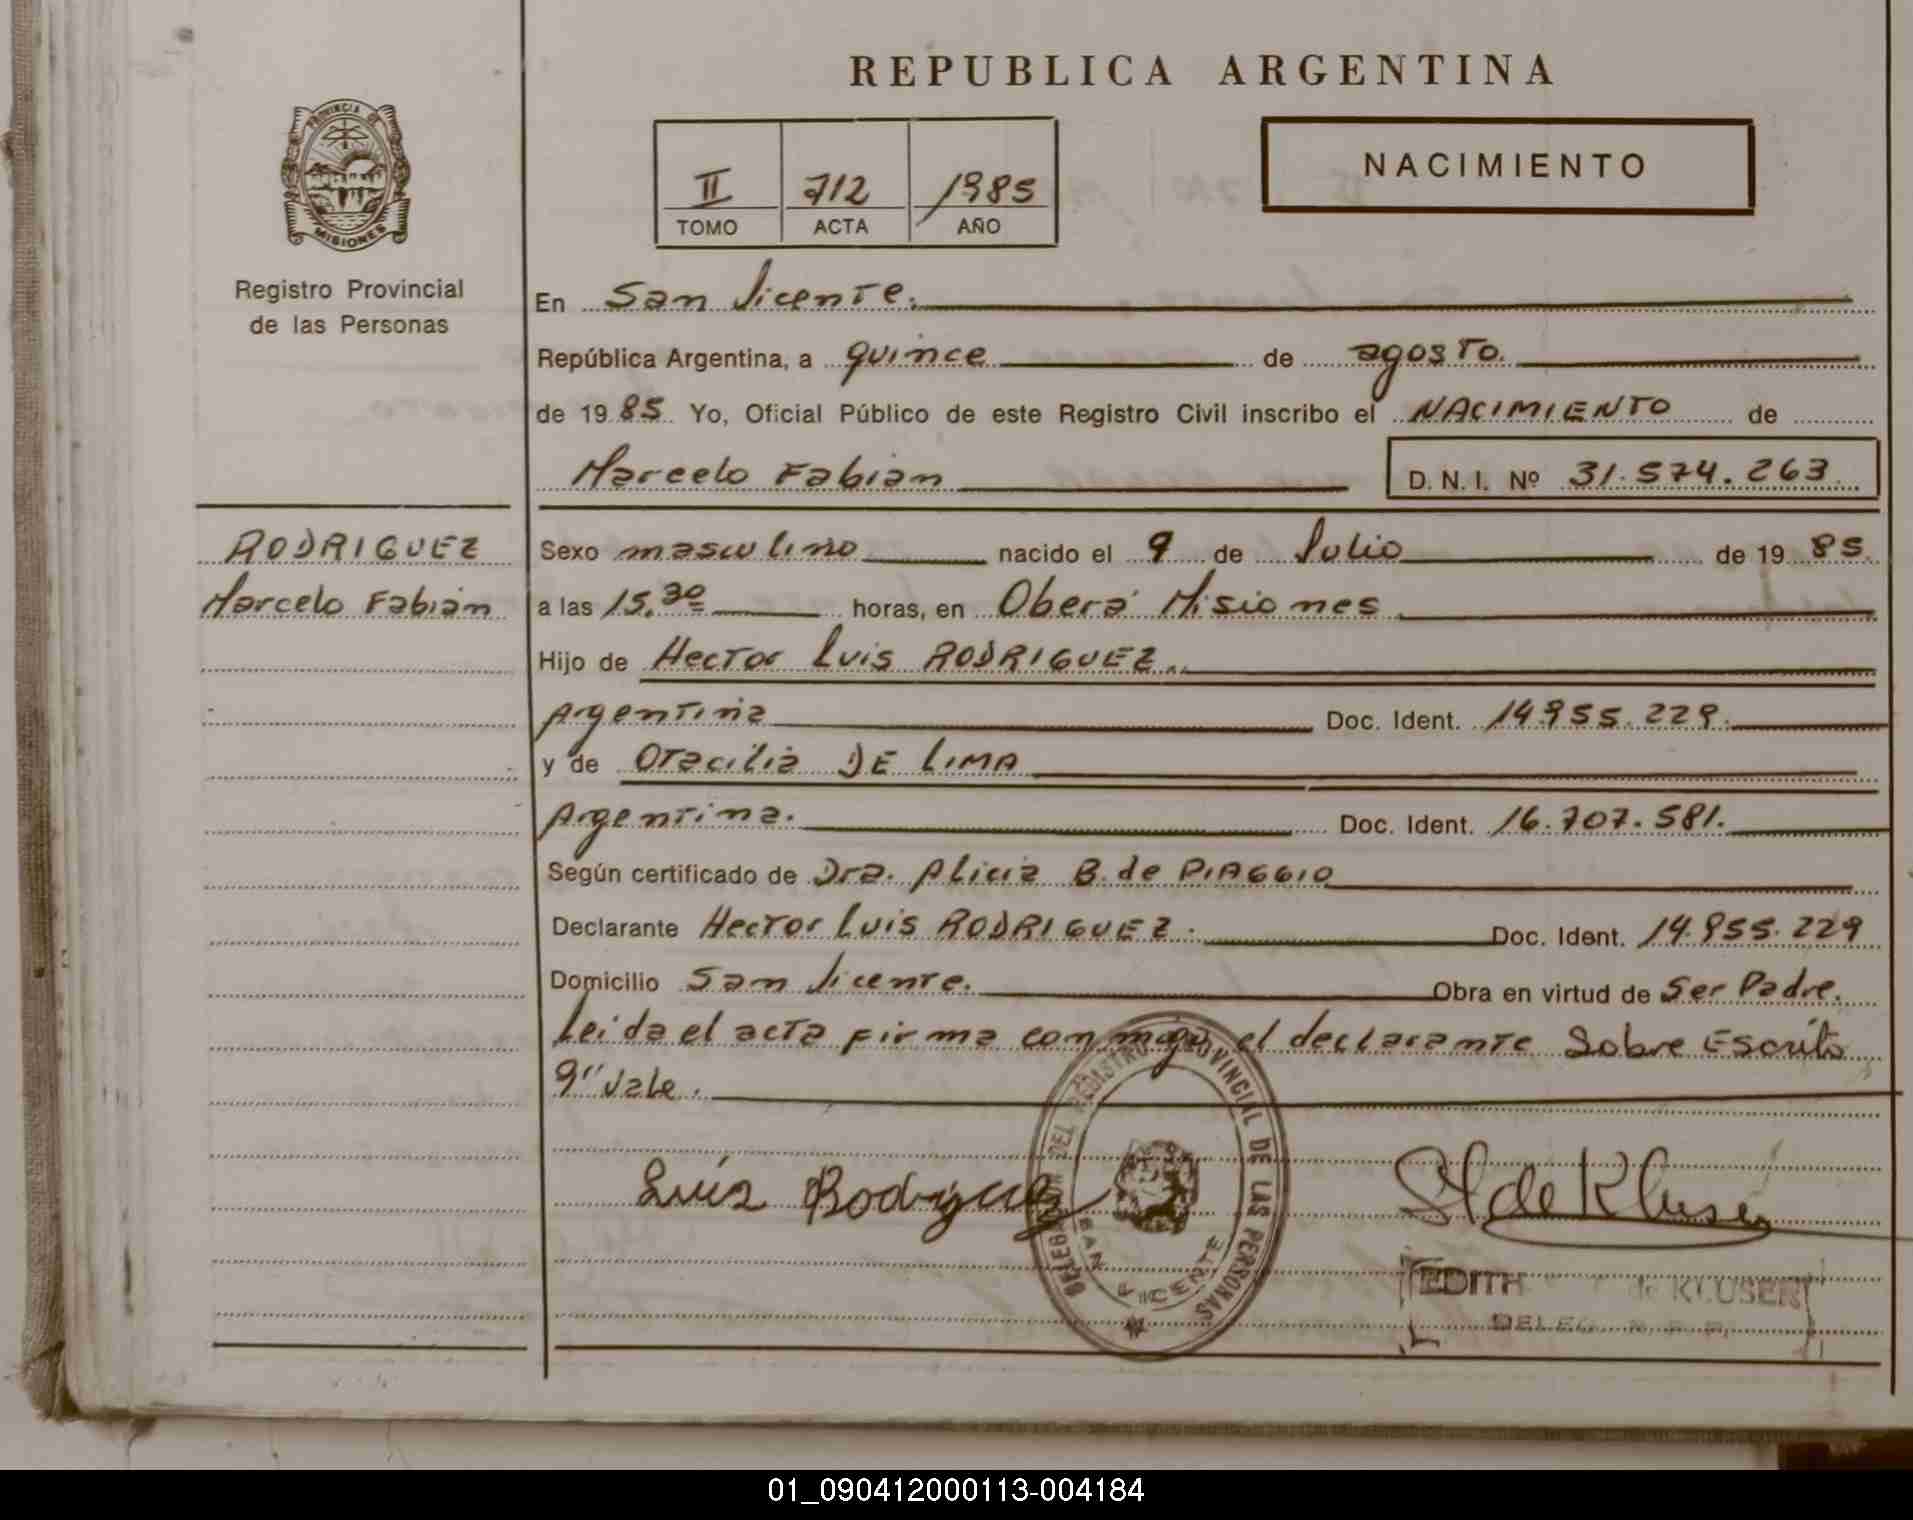 REPUBLICA ARGENTINA
PROVINCIA DE
MISIONES
Registro Provincial
de las Personas
II 712 1985
TOMO ACTA AÑO
NACIMIENTO
En San Vicente.
República Argentina, a quince de agosto.
de 1985 Yo, Oficial Público de este Registro Civil inscribo el NACIMIENTO de
Marcelo Fabian D. N. I. Nº 31.574.263
RODRIGUEZ
Marcelo Fabián
Sexo masculino nacido el 9 de Julio de 1985.
a las 15.30 horas, en Oberá Misiones
Hijo de Hector Luis RODRIGUEZ..
Argentina Doc. Ident. 14.955.229.
y de Otacilia DE LIMA
Argentina. Doc. Ident. 16.707.581.
Según certificado de Dra. Alicia B. de PIAGGIO
Declarante Hector Luis RODRIGUEZ. Doc. Ident. 14.955.229
Domicilio San Vicente. Obra en virtud de Ser Padre.
Leida el acta firma conmigo el declarante Sobre Escrito
9" Vale.
DELEGACION DEL REGISTRO PROVINCIAL DE LAS PERSONAS
SAN VICENTE
Luís Rodriguez
de Kluser
EDITH de KLUSER
DELEG. R. P. P.
01_090412000113-004184